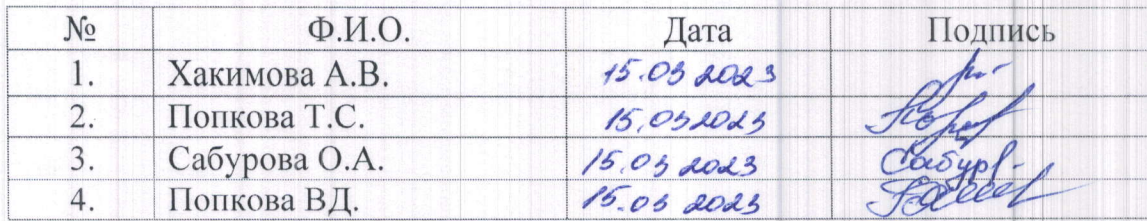 № Ф.И.О. Дата Подпись
1. Хакимова А.В. 15.03 2023
2. Попкова Т.С. 15.03 2023
3. Сабурова О.А. 15.03 2023
4. Попкова ВД. 15.03 2023